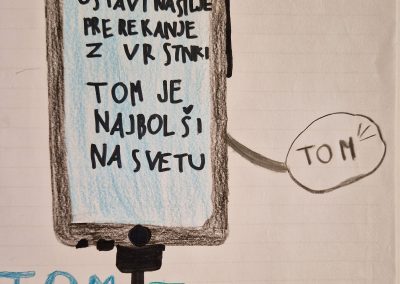 USTAVI NASILJE
PREREKANJE
Z VRSTNIKI
TOM JE
NAJBOLŠI
NA SVETU
TOM
TOM